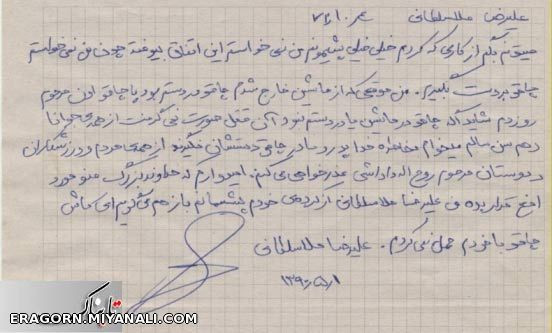 علیرضا ملاسلطانی
میتونم بگم از کاری که کردم خیلی خیلی پشیمونم من نمی خواستم این اتفاق بیوفته چون من نمی خواستم
چاقو بردست بگیرم. من موقعی که از ماشین خارج شدم چاقو در دستم بود با چاقو اون مرحوم
رو زدم شاید اگه چاقو در ماشین یا در دستم نبود آن قتل صورت نمی گرفت از همه ی جوانا
هم سن سالم میخوام بخاطره خدا پدر و مادر چاقو دستشان نگیرند از همه ی مردم و ورزشکاران
و دوستان مرحوم روح اله داداشی عذرخواهی می کنم. امیدوارم که خداوند بزرگ منو مورد
قرار بده من علیرضا ملاسلطانی از کرده ی خودم پشیمانم بازهم می گویم ای کاش
چاقو با خودم حمل نمی کردم. علیرضا ملاسلطانی
۱۳۹۰/۵/۱
تابناک
ERAGORN.MIYANALI.COM